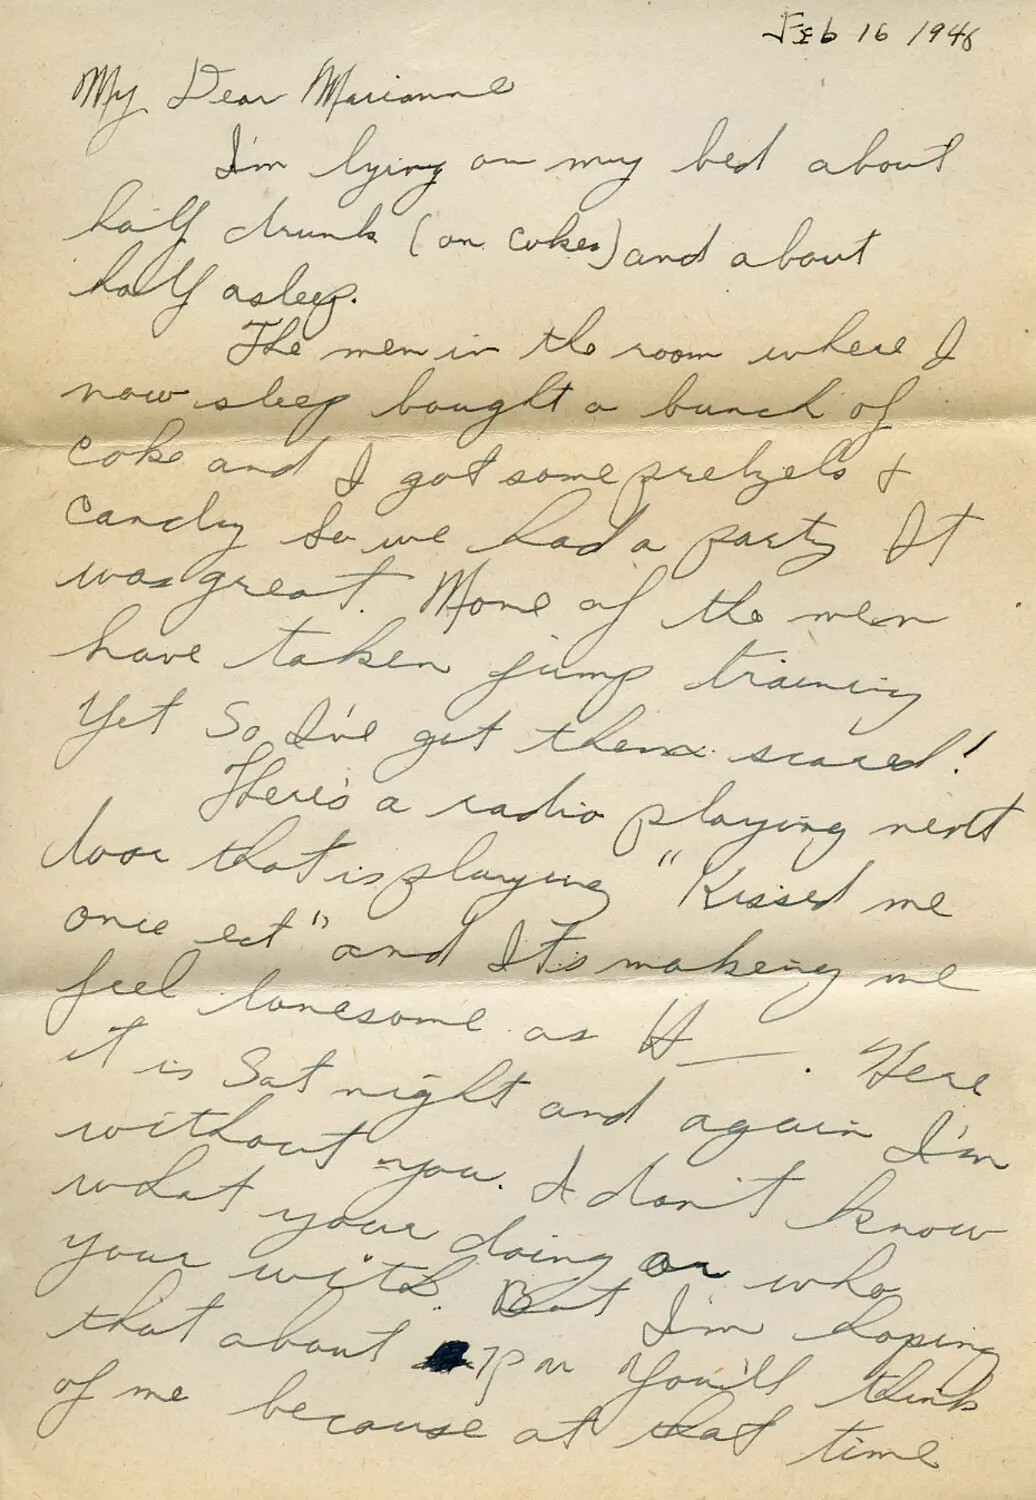 Feb 16 1946
My Dear Marianne
I'm lying on my bed about
half drunk (on cokes) and about
half asleep.
The men in the room where I
now sleep bought a bunch of
coke and I got some pretzels &
candy so we had a party It
was great. None of the men
have taken jump training
yet So I've got them scared!
There's a radio playing next
door that is playing "Kissed me
once ect" and It's making me
feel lonesome as H—. Here
it is Sat night and again I'm
without you. I don't know
what your doing or who
your with. But I'm hoping
that about 7 PM You'll think
of me because at that time